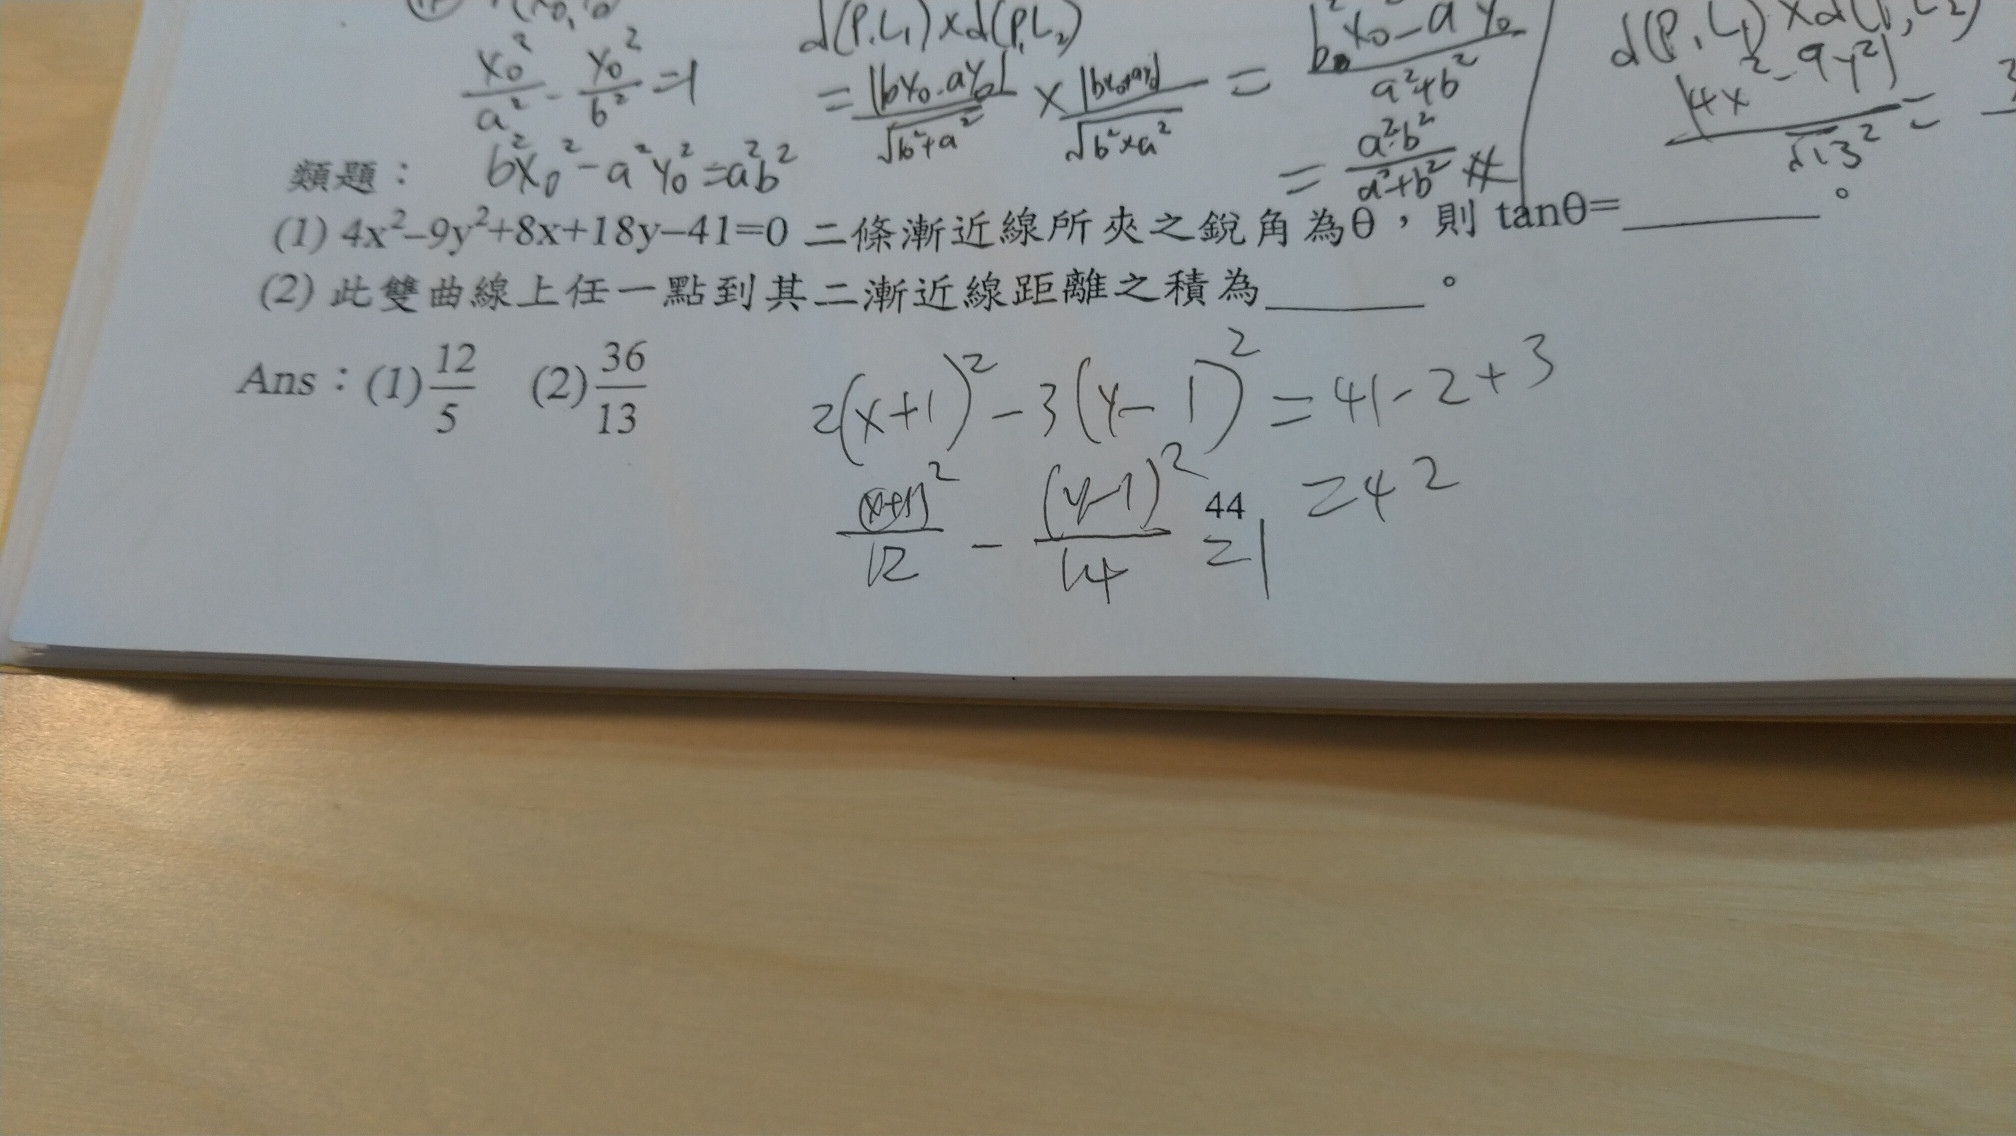 d(P,L₁)×d(P,L₂)
x₀²/a² - y₀²/b² =1
= |bx₀-ay₀|/√b²+a² × |bx₀+ay₀|/√b²×a² = b²x₀²-a²y₀²/a²+b²
= a²b²/a²+b² #
d(P,L₁)×d(P,L₂)
|4x²-9y²|/√13² =
類題： b²x₀²-a²y₀²=a²b²
(1) 4x²–9y²+8x+18y–41=0 二條漸近線所夾之銳角為θ，則 tanθ=________。
(2) 此雙曲線上任一點到其二漸近線距離之積為______。
Ans：(1) 12/5 (2) 36/13
2(x+1)²-3(y-1)²=41-2+3
=42
(x+1)²/12 - (y-1)²/14 =1
44